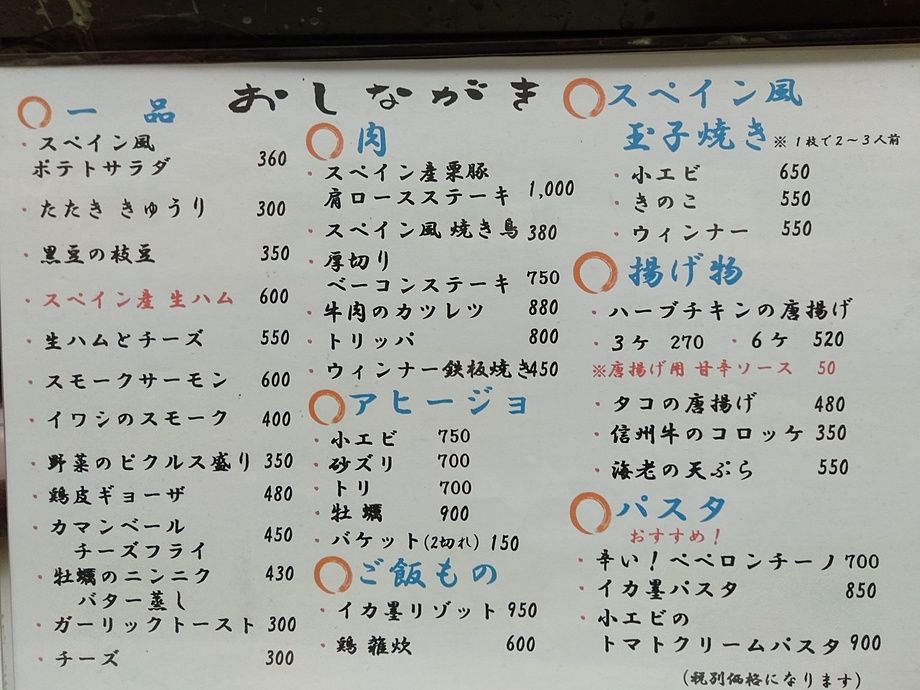 おしながき
一品
・スペイン風
ポテトサラダ 360
・たたききゅうり 300
・黒豆の枝豆 350
・スペイン産 生ハム 600
・生ハムとチーズ 550
・スモークサーモン 600
・イワシのスモーク 400
・野菜のピクルス盛り 350
・鶏皮ギョーザ 480
・カマンベール
チーズフライ 450
・牡蠣のニンニク 430
バター蒸し
・ガーリックトースト 300
・チーズ 300
肉
・スペイン産栗豚
肩ロースステーキ 1,000
・スペイン風 焼き鳥 380
・厚切り
ベーコンステーキ 750
・牛肉のカツレツ 880
・トリッパ 800
・ウィンナー鉄板焼き 450
アヒージョ
・小エビ 750
・砂ズリ 700
・トリ 700
・牡蠣 900
・バケット(2切れ) 150
ご飯もの
・イカ墨リゾット 950
・鶏雑炊 600
スペイン風
玉子焼き ※1枚で2~3人前
・小エビ 650
・きのこ 550
・ウィンナー 550
揚げ物
・ハーブチキンの唐揚げ
・3ケ 270 ・6ケ 520
※唐揚げ用 甘辛ソース 50
・タコの唐揚げ 480
・信州牛のコロッケ 350
・海老の天ぷら 550
パスタ
おすすめ!
・辛い!ペペロンチーノ 700
・イカ墨パスタ 850
・小エビの
トマトクリームパスタ 900
(税別価格になります)